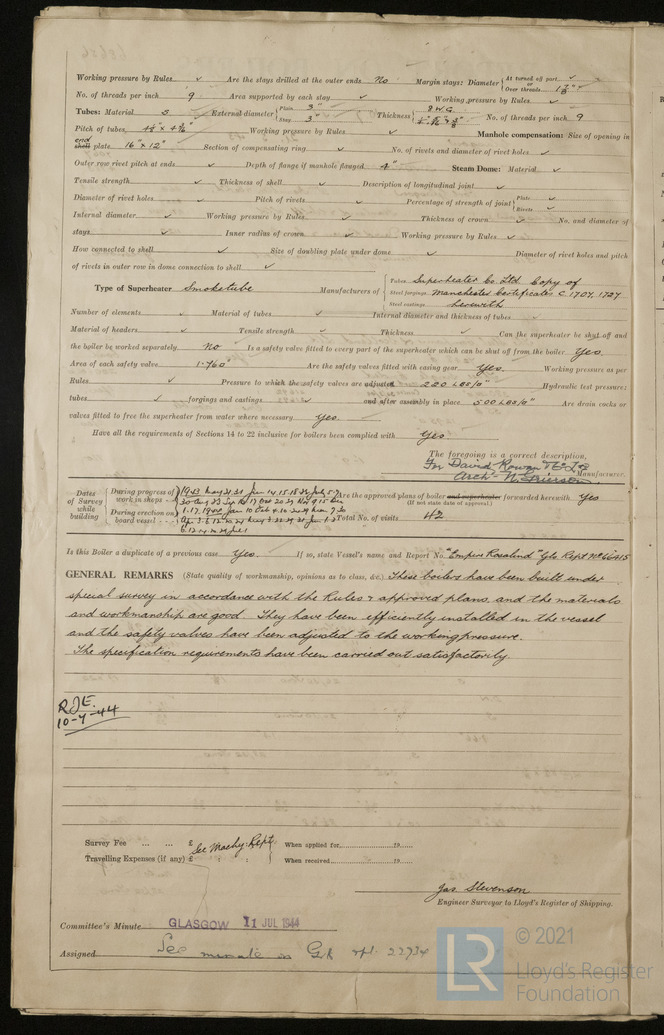 Working pressure by Rules ✓ Are the stays drilled at the outer ends No Margin stays: Diameter { At turned off part ✓ or Over threads 1 7/8" ✓
No. of threads per inch 9 Area supported by each stay ✓ Working pressure by Rules ✓
Tubes: Material S External diameter { Plain 3" Stay 3" Thickness { 8 W.G. No. of threads per inch 9
Pitch of tubes Working pressure by Rules ✓ Manhole compensation: Size of opening in
end shell plate 16" x 12" Section of compensating ring ✓ No. of rivets and diameter of rivet holes ✓
Outer row rivet pitch at ends ✓ Depth of flange if manhole flanged 4" Steam Dome: Material ✓
Tensile strength ✓ Thickness of shell ✓ Description of longitudinal joint ✓
Diameter of rivet holes ✓ Pitch of rivets ✓ Percentage of strength of joint { Plate ✓ Rivets ✓
Internal diameter ✓ Working pressure by Rules ✓ Thickness of crown ✓ No. and diameter of
stays ✓ Inner radius of crown ✓ Working pressure by Rules ✓
How connected to shell ✓ Size of doubling plate under dome ✓ Diameter of rivet holes and pitch
of rivets in outer row in dome connection to shell ✓
Type of Superheater Smoketube Manufacturers of { Tubes Superheater Co. Ltd. Copy of
Steel forgings Manchester Certificates C 1704, 1727
Steel castings herewith
Number of elements ✓ Material of tubes ✓ Internal diameter and thickness of tubes ✓
Material of headers ✓ Tensile strength ✓ Thickness ✓ Can the superheater be shut off and
the boiler be worked separately No Is a safety valve fitted to every part of the superheater which can be shut off from the boiler Yes.
Area of each safety valve 1.760 Are the safety valves fitted with easing gear Yes. Working pressure as per
Rules ✓ Pressure to which the safety valves are adjusted 220 LBS/□" Hydraulic test pressure:
tubes ✓ forgings and castings ✓ and after assembly in place 500 LBS/□" Are drain cocks or
valves fitted to free the superheater from water where necessary Yes.
Have all the requirements of Sections 14 to 22 inclusive for boilers been complied with Yes
The foregoing is a correct description,
For David Rowan & Co. Ld
Arch. W. Grierson Manufacturer.
Dates of Survey while building { During progress of work in shops - - 1943 May 21.31 Jun 14.15.18.25 July 5.7
30 Aug 23 Sep 17 Oct 20.29 Nov 9.15 Dec
During erection on board vessel - - - 1.17.1944 Jan 10 Feb 4.10.24.29 Mar 7.30
Apr 3.6.12.20.24 May 3.22.29.31 Jun 1.2
6.12.14
Are the approved plans of boiler and superheater forwarded herewith Yes
(If not state date of approval.)
Total No. of visits 42
Is this Boiler a duplicate of a previous case Yes. If so, state Vessel's name and Report No. "Empire Rosalind" Gls Rept No 66415
GENERAL REMARKS (State quality of workmanship, opinions as to class, &c.) These boilers have been built under
special survey in accordance with the Rules & approved plans, and the materials
and workmanship are good. They have been efficiently installed in the vessel
and the safety valves have been adjusted to the working pressure.
The specification requirements have been carried out satisfactorily.
R.J.E.
10-7-44
Survey Fee ... ... £ See Machy Rept. When applied for 19
Travelling Expenses (if any) £ : : When received 19
Jas Stevenson
Engineer Surveyor to Lloyd's Register of Shipping.
Committee's Minute GLASGOW 11 JUL 1944
Assigned See minute on G.K. rpt. 22934
LR © 2021
Lloyd's Register
Foundation